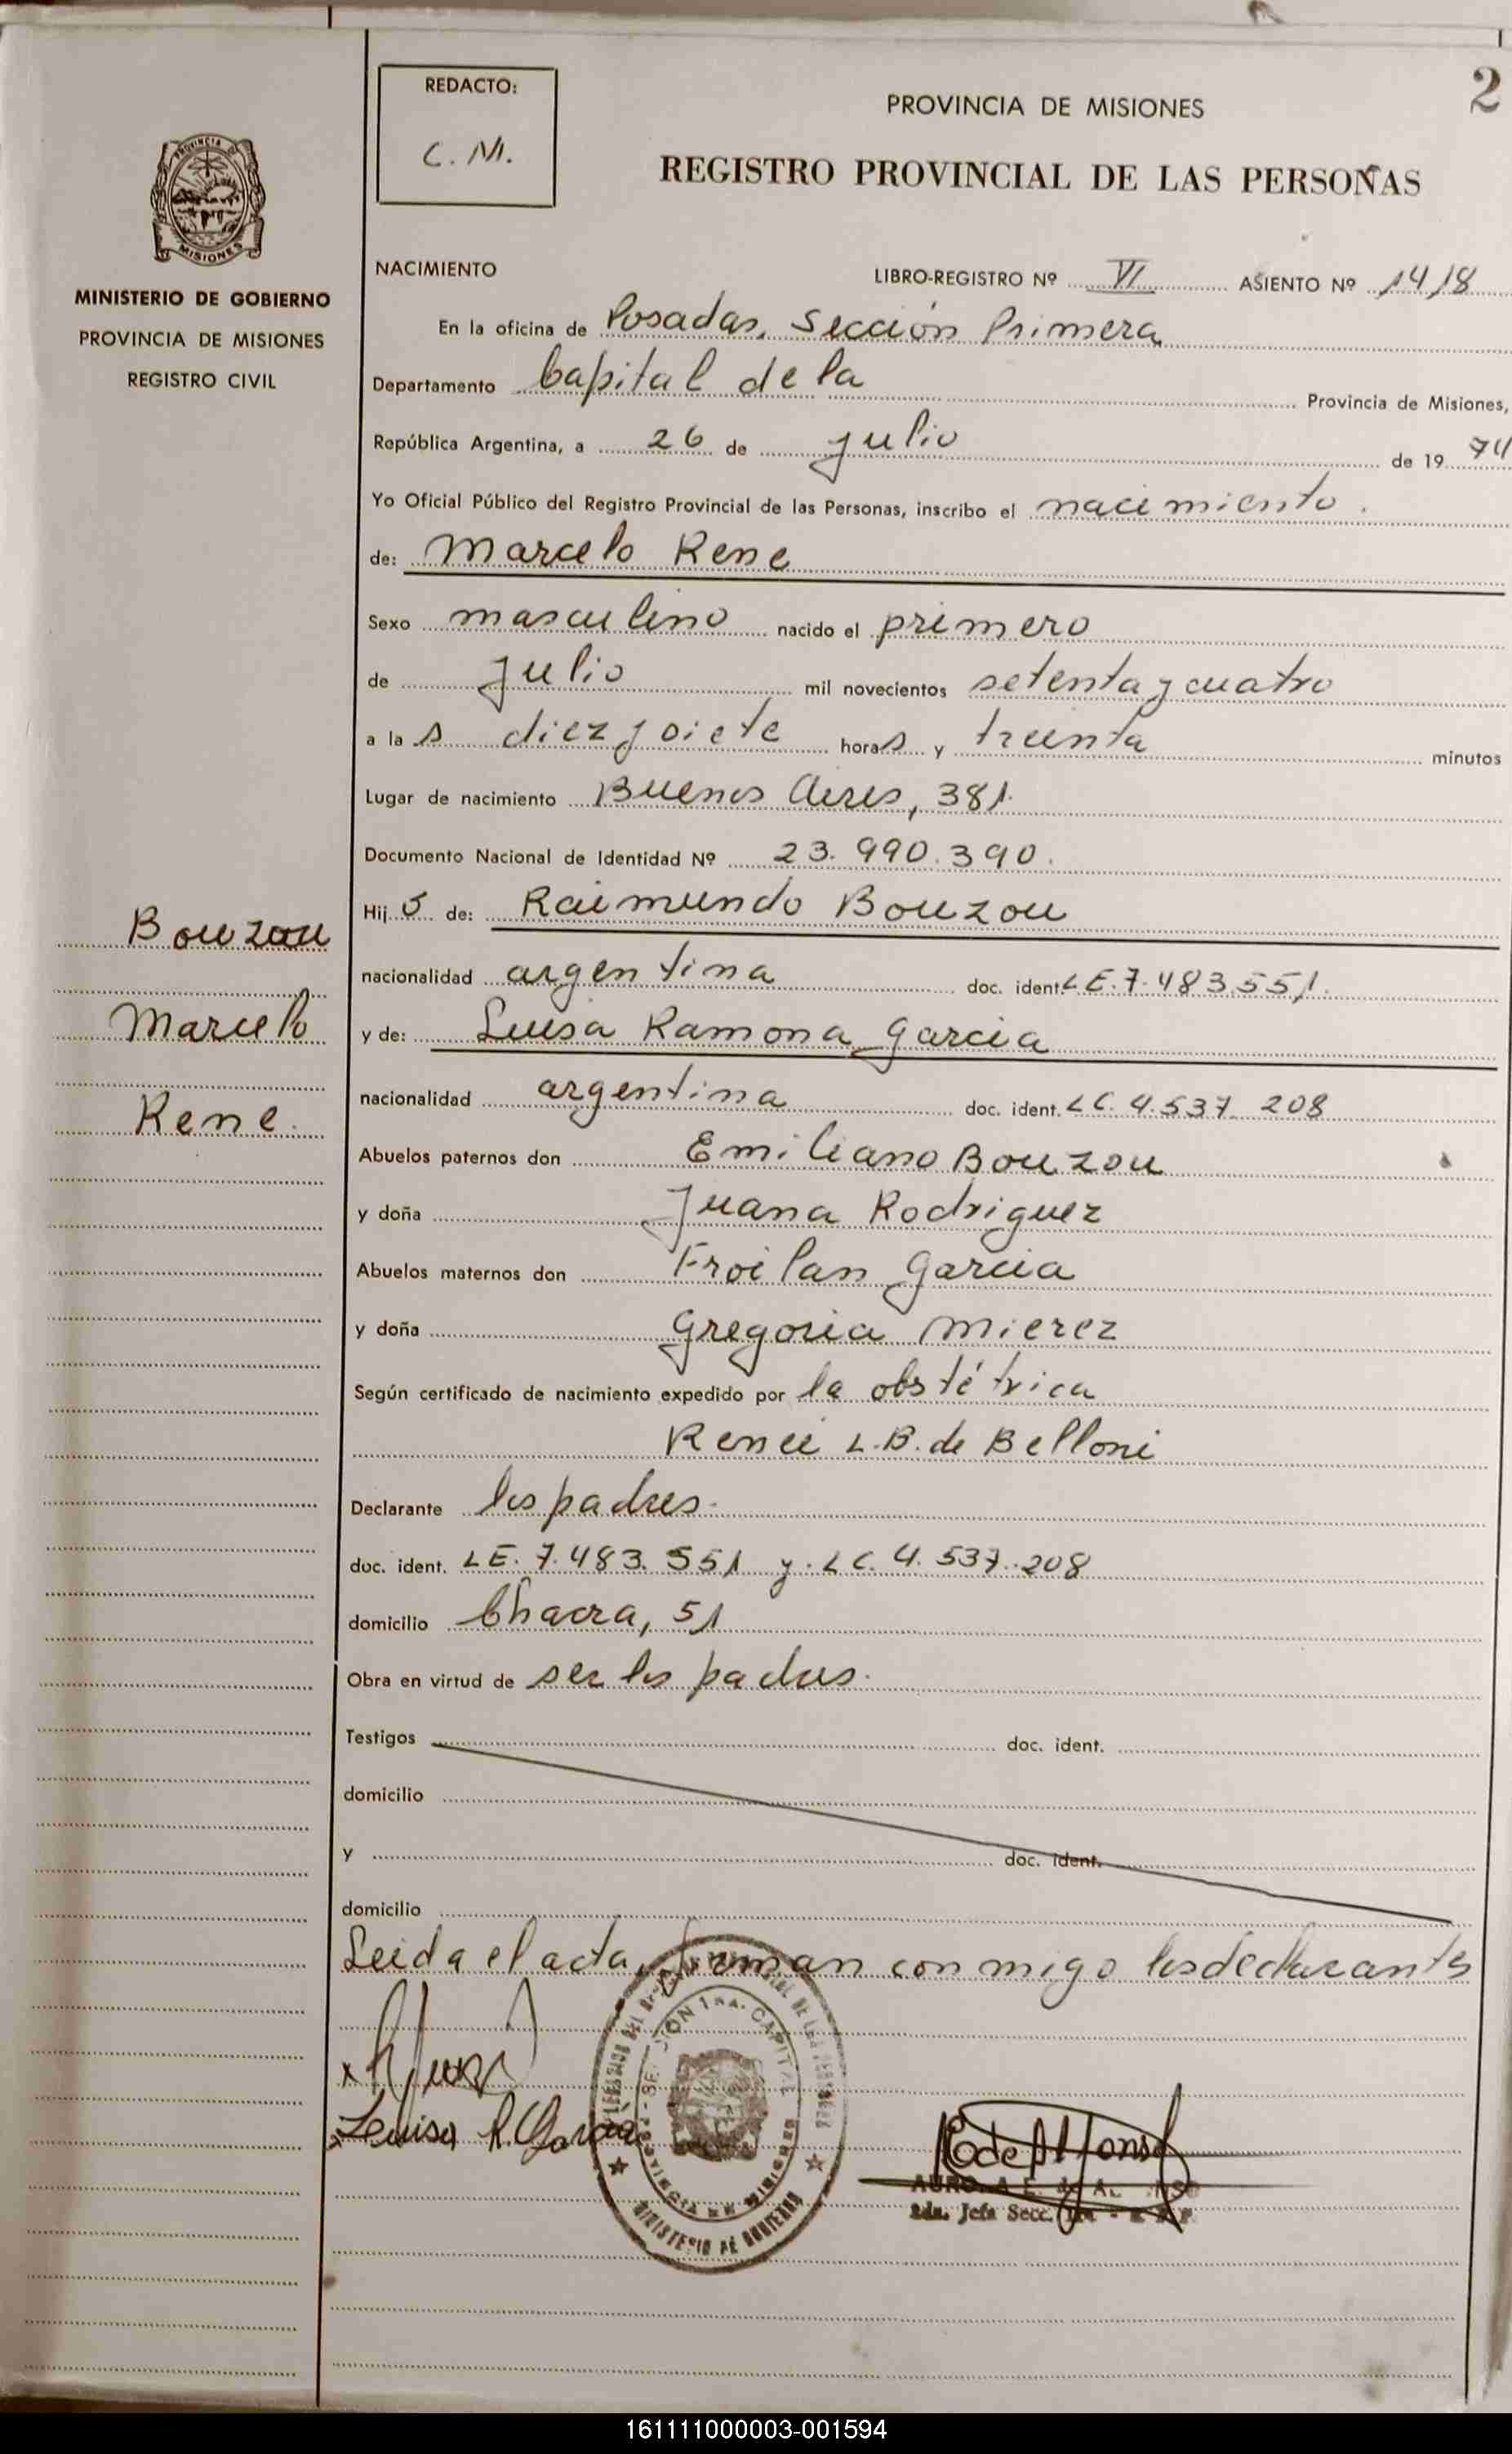 2
REDACTO:
C. M.
PROVINCIA DE MISIONES
REGISTRO PROVINCIAL DE LAS PERSONAS
PROVINCIA DE
MISIONES
MINISTERIO DE GOBIERNO
PROVINCIA DE MISIONES
REGISTRO CIVIL
NACIMIENTO LIBRO-REGISTRO Nº VI ASIENTO Nº 1418
En la oficina de Posadas, Sección Primera
Departamento Capital de la Provincia de Misiones,
República Argentina, a 26 de Julio de 19 74
Yo Oficial Público del Registro Provincial de las Personas, inscribo el nacimiento.
de: Marcelo Rene
Sexo masculino nacido el primero
de Julio mil novecientos setenta y cuatro
a la s diez y siete hora s y treinta minutos
Lugar de nacimiento Buenos Aires, 381.
Documento Nacional de Identidad Nº 23.990.390.
Hij o de: Raimundo Bouzou
nacionalidad argentina doc. ident. LE. 7.483.551.
y de: Luisa Ramona Garcia
nacionalidad argentina doc. ident. LC. 4.537.208
Abuelos paternos don Emiliano Bouzou
y doña Juana Rodriguez
Abuelos maternos don Froilan Garcia
y doña Gregoria Mierez
Según certificado de nacimiento expedido por la obstétrica
Renee L.B. de Belloni
Declarante los padres.
doc. ident. LE. 7.483.551 y LC. 4.537.208
domicilio Chacra, 51
Obra en virtud de ser los padres.
Testigos doc. ident.
domicilio
y doc. ident.
domicilio
Leida el acta, firman con migo los declarantes
Bouzou
Marcelo
Rene.
x
x Luisa R. Garcia
SECCION 1ra. CAPITAL
PROVINCIA DE MISIONES
MINISTERIO DE GOBIERNO
2da. Jefa Secc.
161111000003-001594